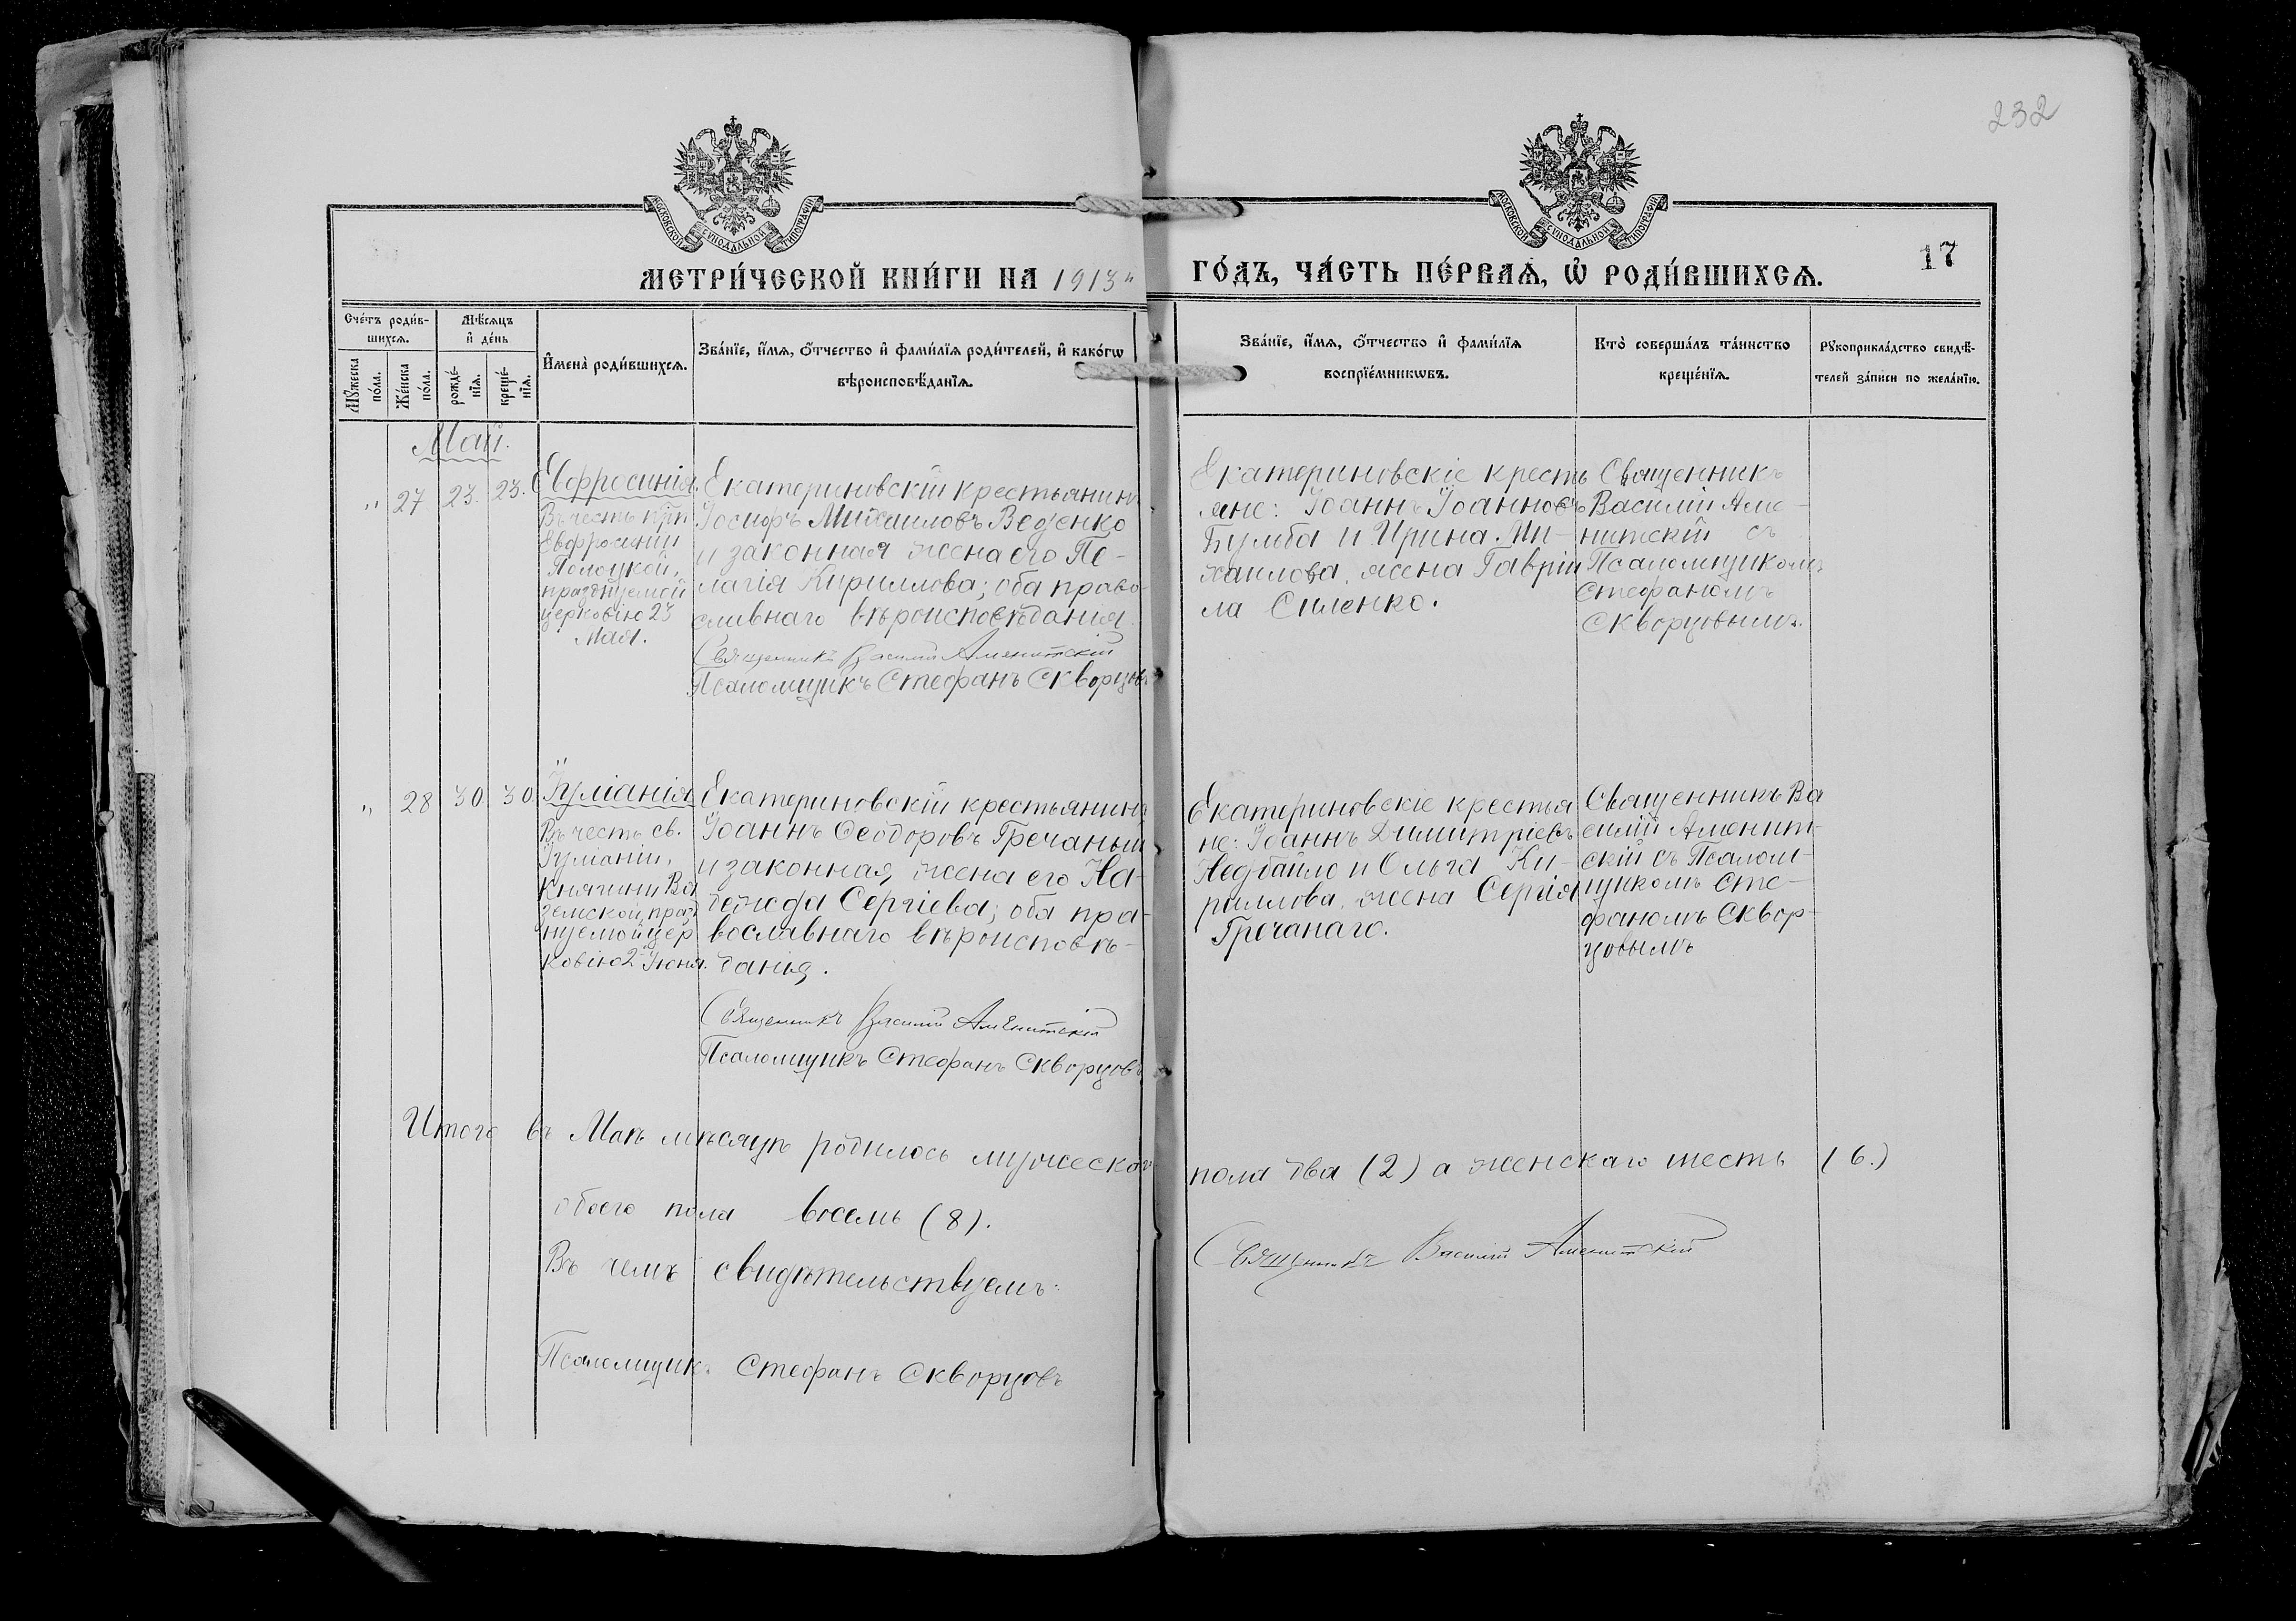 232
МОСКОВСКОЙ СУНОДАЛЬНОЙ ТИПОГРАФІИ
МОСКОВСКОЙ СУНОДАЛЬНОЙ ТИПОГРАФІИ
17
МЕТРИ́ЧЕСКОЙ КНИ́ГИ НА 1913 „
ГО́ДЪ, ЧА́СТЬ ПЕ́РВАѦ, Ѿ РОДИ́ВШИХСѦ.
Сче́тъ роди́в-
шихсѧ.
Мꙋ́жеска
по́ла.
Же́нска
по́ла.
Мѣ́сѧцъ
и҆ де́нь
рожде́-
нїѧ.
креще́-
нїѧ.
И҆мена̀ роди́вшихсѧ.
Зва́нїе, и҆́мѧ, ѻ҆́тчество и҆ фами́лїѧ роди́телей, и҆ како́гѡ
вѣроисповѣ́данїѧ.
Зва́нїе, и҆́мѧ, ѻ҆́тчество и҆ фами́лїѧ
воспрїе́мникѡвъ.
Кто̀ соверша́лъ та́инство
креще́нїѧ.
Рꙋкоприкла́дство свидѣ́-
телей за́писи по жела́нїю.
Май.
„ 27 23. 23.
Евфросинія.
Въ честь прп
Евфросиніи
Полоцкой,
празднуемой
церковію 23
Мая.
Екатериновскій крестьянинъ
Іосифъ Михаиловъ Веденко
и законная жена его Пе-
лагія Кириллова; оба право-
славнаго вѣроисповѣданія
Священникъ Василій Аменитскій
Псаломщикъ Стефанъ Скворцовъ
Екатериновскіе кресть
яне: Іоаннъ Іоанновъ
Бульба и Ирина Ми-
хаилова, жена Гавріи
ла Силенко.
Священникъ
Василій Аме-
нитскій съ
Псаломщикомъ
Стефаномъ
Скворцовымъ.
„ 28 30 30
Іуліанія
Въ честь св.
Іуліаніи,
Княгини Вя
земской, праз
нуемой цер
ковію 2 Іюня.
Екатериновскій крестьянинъ
Іоаннъ Ѳеодоровъ Гречаный
и законная жена его На-
дежда Сергіева; оба пра-
вославнаго вѣроисповѣ-
данія.
Священникъ Василій Аменитскій
Псаломщикъ Стефанъ Скворцовъ
Екатериновскіе крестья
не: Іоаннъ Димитріевъ
Недбайло и Ольга Ки-
риллова, жена Сергія
Гречанаго.
Священникъ Ва
силій Аменит-
скій съ Псалом-
щикомъ Сте-
фаномъ Сквор-
цовымъ
Итого въ Маѣ мѣсяцѣ родилось мужескаго
пола два (2) а женскаго шесть (6.)
обоего пола восемь (8).
Въ чемъ свидѣтельствуемъ:
Священникъ Василій Аменитскій
Псаломщикъ Стефанъ Скворцовъ